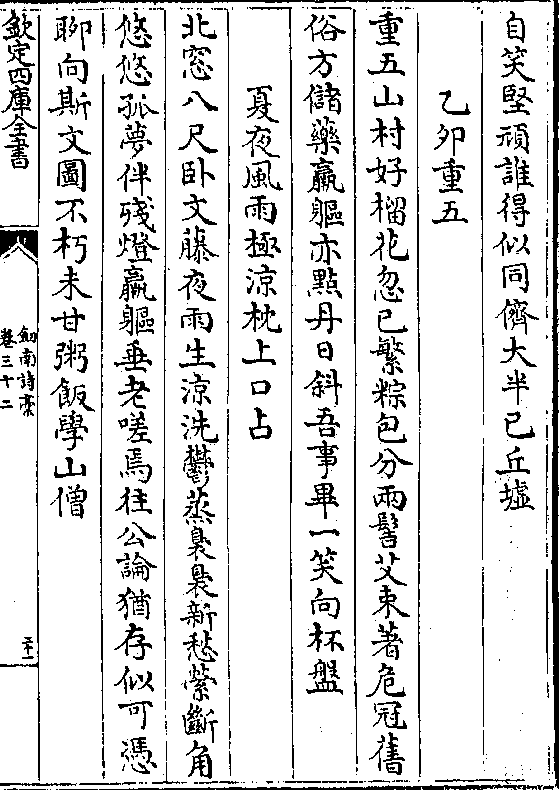 自笑堅頑誰得似同儕大半已丘墟
乙卯重五
重五山村好榴花忽已繁粽包分兩髻艾束著危冠舊
俗方儲藥羸軀亦點丹日斜吾事畢一笑向杯盤
夏夜風雨極涼枕上口占
北窓八尺卧文藤夜雨生涼洗鬱蒸裊裊新愁縈斷角
悠悠孤夢伴殘燈羸軀垂老嗟焉往公論猶存似可憑
聊向斯文圖不朽未甘粥飯學山僧
欽定四庫全書
劒南詩稾
卷三十二